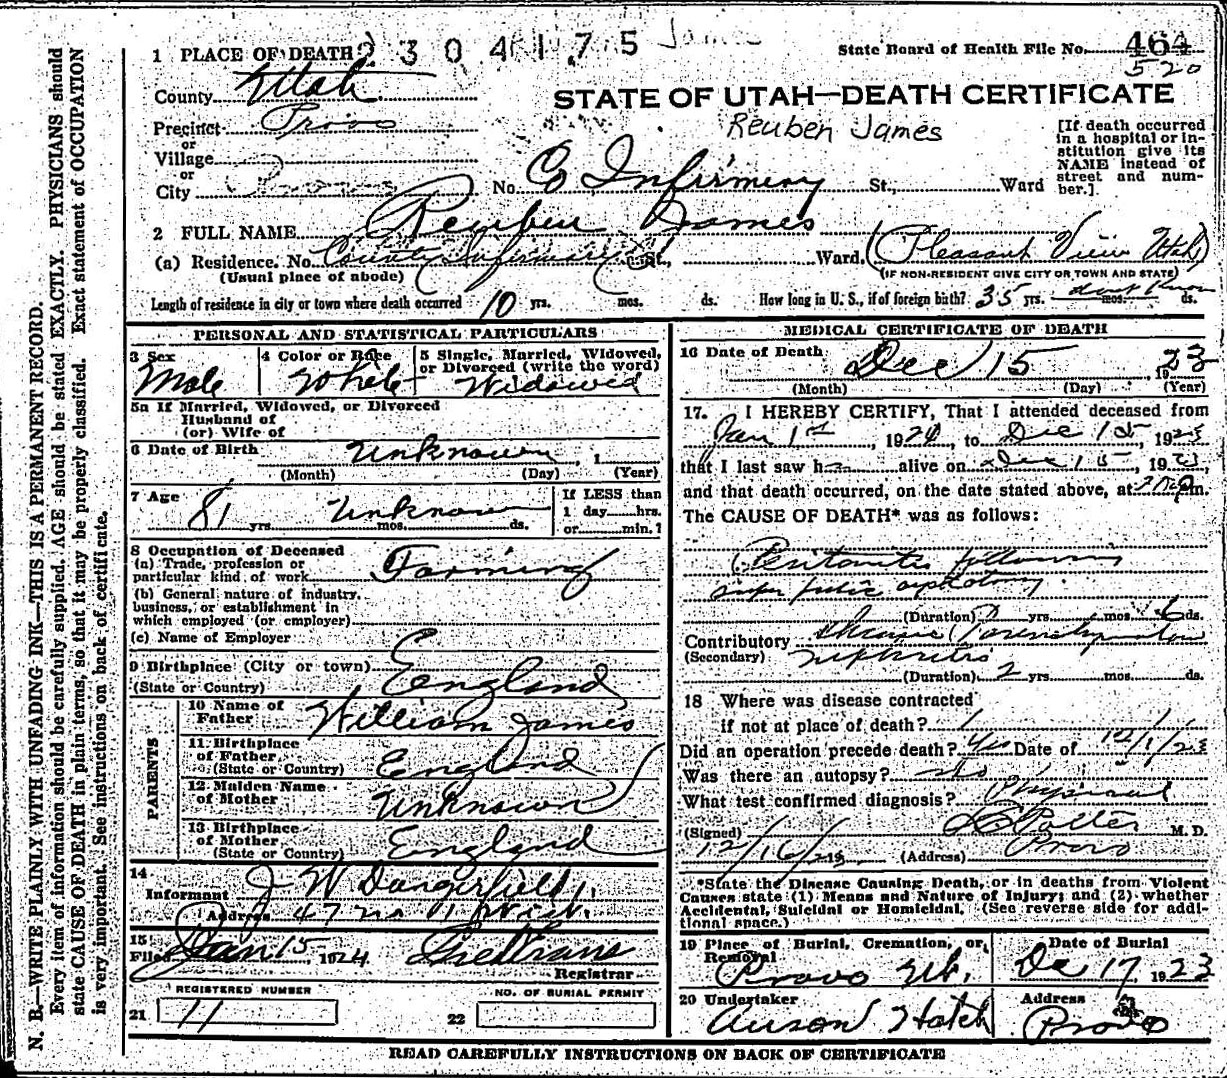 N. B.—WRITE PLAINLY WITH UNFADING INK—THIS IS A PERMANENT RECORD.
Every item of information should be carefully supplied. AGE should be stated EXACTLY. PHYSICIANS should
state CAUSE OF DEATH in plain terms, so that it may be properly classified. Exact statement of OCCUPATION
is very important. See instructions on back of certificate.
1 PLACE OF DEATH 2304175 James
State Board of Health File No. 464
520
County Utah
STATE OF UTAH—DEATH CERTIFICATE
Reuben James
Precinct Provo
or
Village
or
City Provo No. Co Infirmery St., Ward
[If death occurred
in a hospital or in-
stitution give its
NAME instead of
street and num-
ber.]
2 FULL NAME Reuben James
(a) Residence. No. County Infirmary St., Ward. (Pleasant View Utah)
(Usual place of abode) (IF NON-RESIDENT GIVE CITY OR TOWN AND STATE)
Length of residence in city or town where death occurred 10 yrs. mos. ds. How long in U. S., if of foreign birth? 35 yrs. dont Know mos. ds.
PERSONAL AND STATISTICAL PARTICULARS
3 Sex Male
4 Color or Race White
5 Single, Married, Widowed, or Divorced (write the word) Widowed
5a If Married, Widowed, or Divorced
Husband of
(or) Wife of
6 Date of Birth Unknown, 1
(Month) (Day) (Year)
7 Age 81 yrs. Unknown mos. ds.
If LESS than
1 day hrs.
or min.?
8 Occupation of Deceased
(a) Trade, profession or
particular kind of work Farming
(b) General nature of industry,
business, or establishment in
which employed (or employer)
(c) Name of Employer
9 Birthplace (City or town)
(State or Country) England
PARENTS
10 Name of
Father William James
11 Birthplace
of Father
(State or Country) England
12 Maiden Name
of Mother Unknown
13 Birthplace
of Mother
(State or Country) England
14
Informant J W Dangerfield
Address 47 no 1 West
15
Filed Jan 15 1924
Registrar
REGISTERED NUMBER
21 11
NO. OF BURIAL PERMIT
22
MEDICAL CERTIFICATE OF DEATH
16 Date of Death Dec 15 1923
(Month) (Day) (Year)
17. I HEREBY CERTIFY, That I attended deceased from
Jan 1st, 19 to Dec 15, 1923
that I last saw h alive on Dec 15, 1923,
and that death occurred, on the date stated above, at m.
The CAUSE OF DEATH* was as follows:
Peritonitis following
supra pubic
(Duration) yrs. mos. 6 ds.
Contributory chronic Parenchymatous
(Secondary) nephritis
(Duration) 2 yrs. mos. ds.
18 Where was disease contracted
if not at place of death?
Did an operation precede death? Yes Date of 12/1/23
Was there an autopsy? no
What test confirmed diagnosis? Physical
(Signed) M. D.
12/16/23 (Address) Provo
*State the Disease Causing Death, or in deaths from Violent
Causes state (1) Means and Nature of Injury; and (2) whether
Accidental, Suicidal or Homicidal. (See reverse side for addi-
tional space.)
19 Place of Burial, Cremation, or
Removal Provo Ut.
Date of Burial
Dec 17 1923
20 Undertaker
Anson Hatch
Address
Provo
READ CAREFULLY INSTRUCTIONS ON BACK OF CERTIFICATE